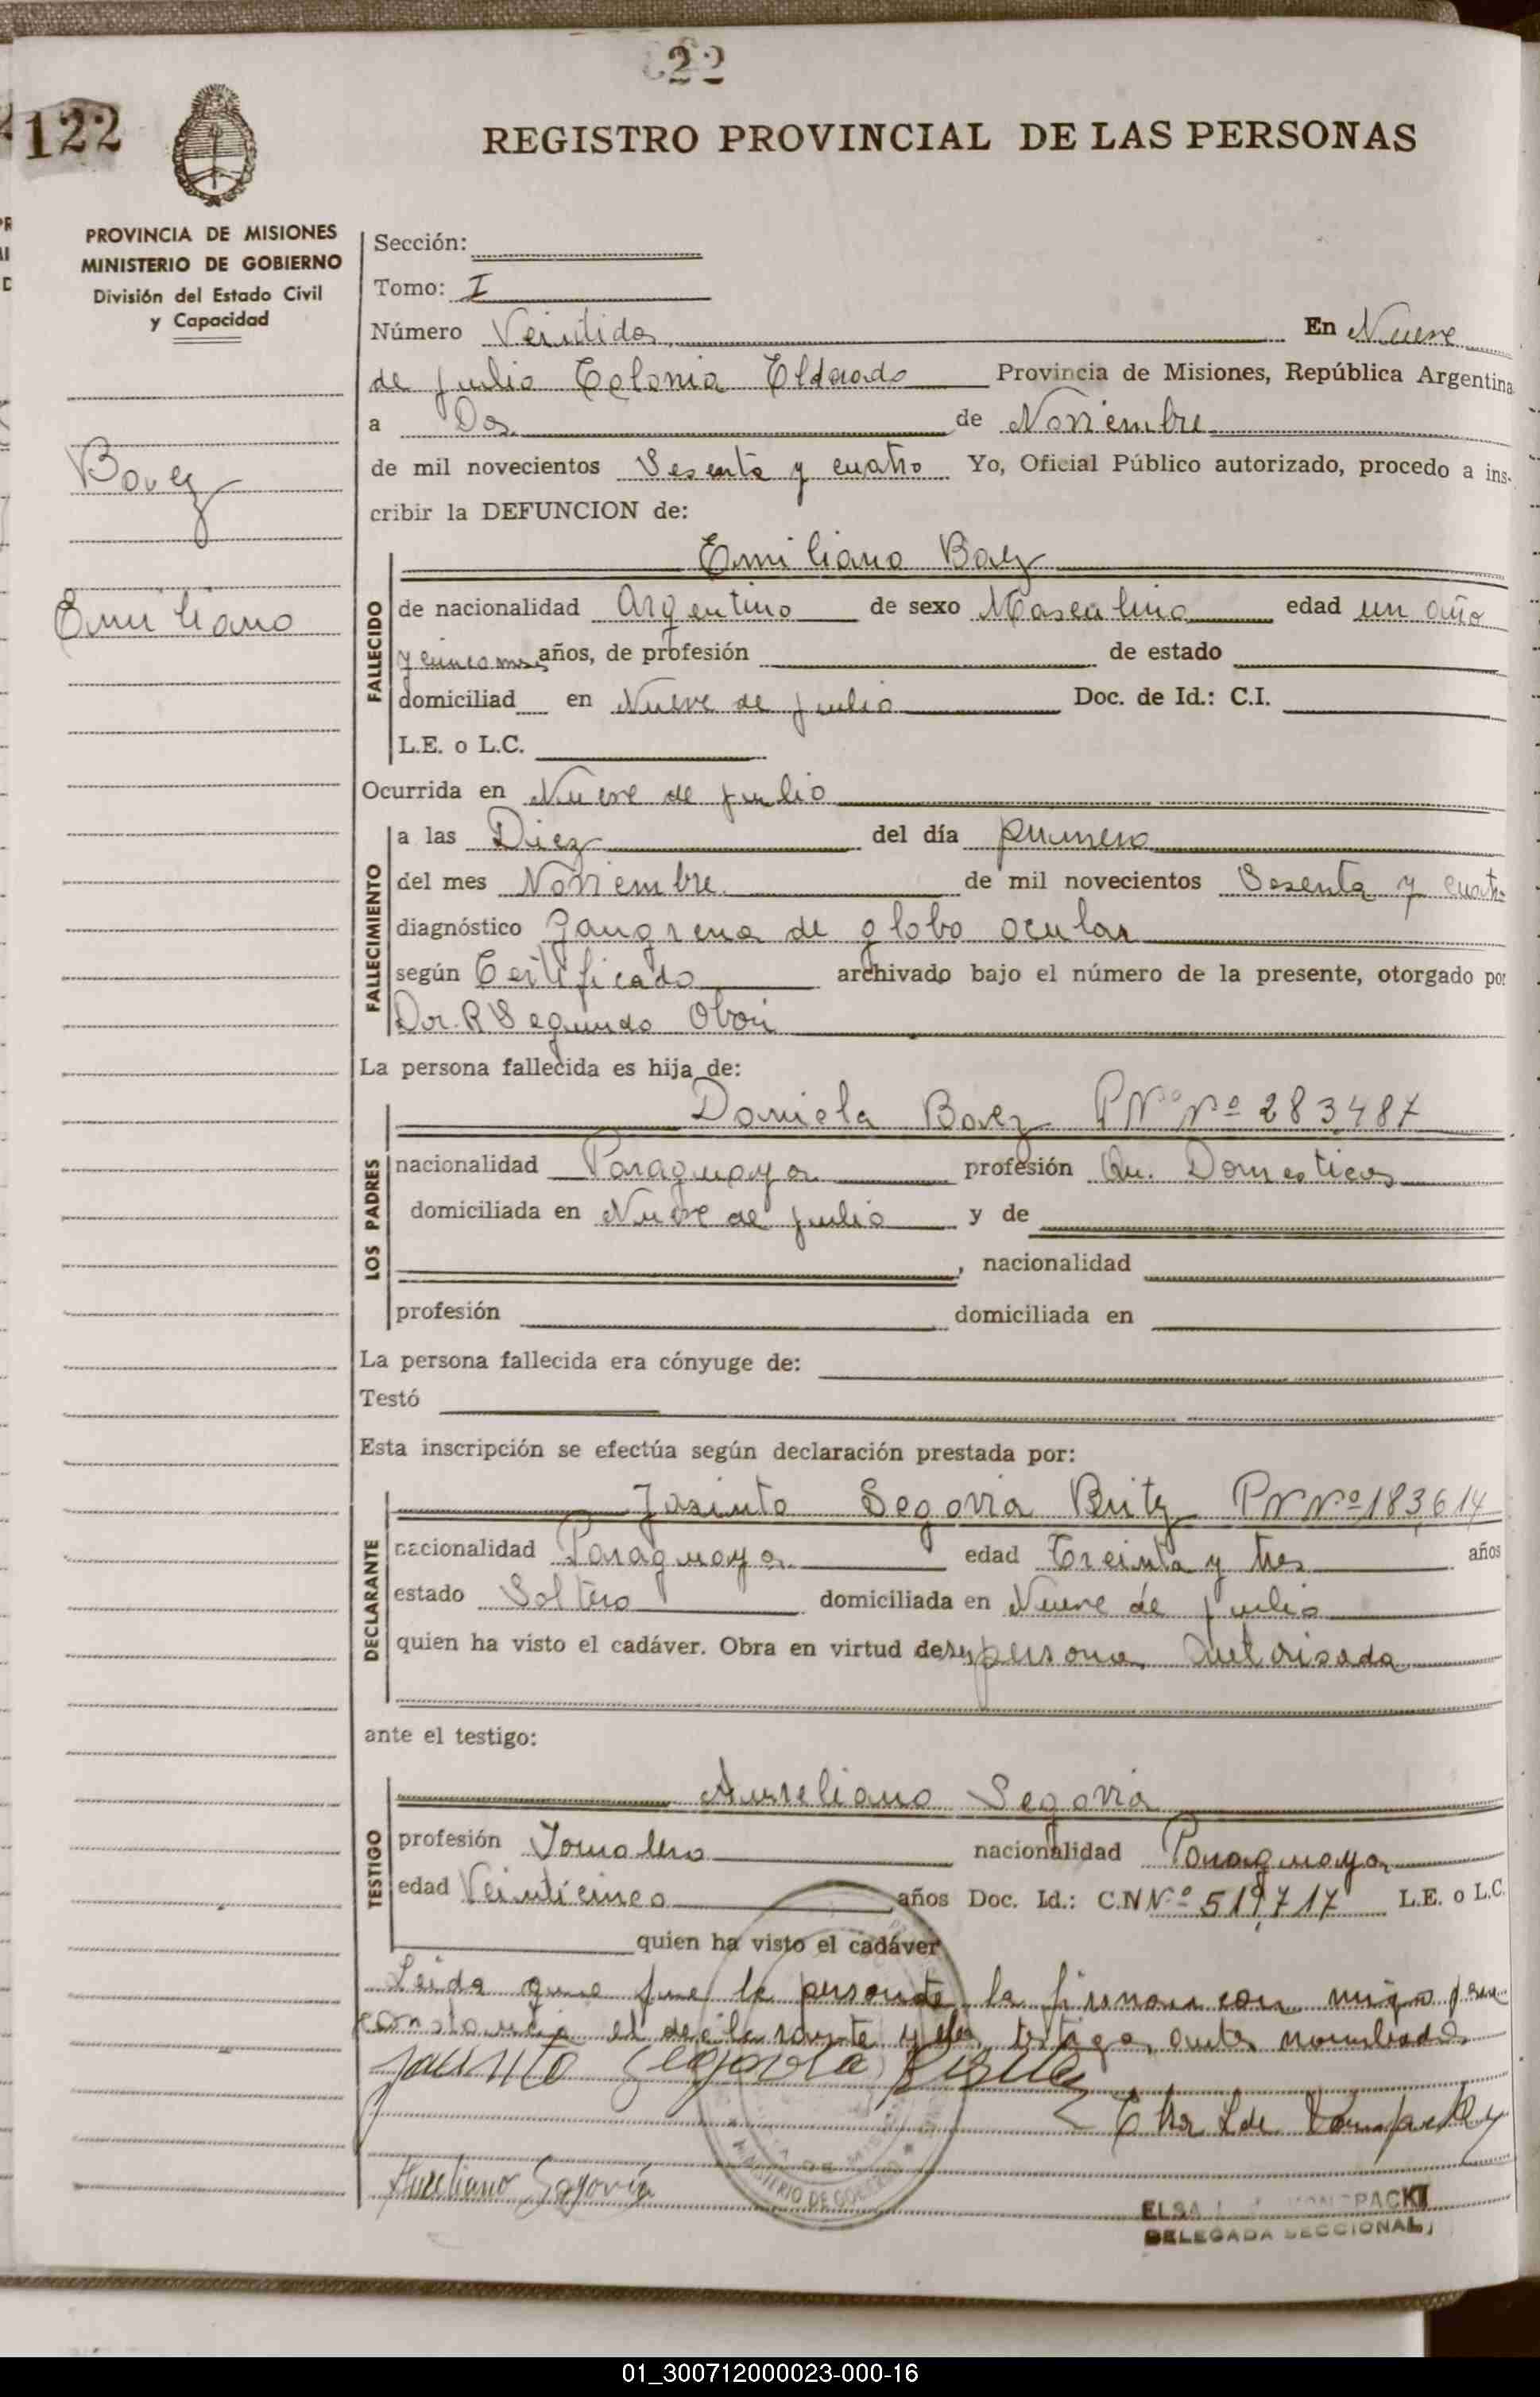 22
122
REGISTRO PROVINCIAL DE LAS PERSONAS
PROVINCIA DE MISIONES
MINISTERIO DE GOBIERNO
División del Estado Civil
y Capacidad
Bavez
Emiliano
Sección:
Tomo: I
Número Veintidos En Nueve
de julio Colonia Eldorado Provincia de Misiones, República Argentina
a Dos de Noviembre
de mil novecientos Sesenta y cuatro Yo, Oficial Público autorizado, procedo a ins-
cribir la DEFUNCION de:
Emiliano Baez
FALLECIDO
de nacionalidad Argentino de sexo Masculino edad un año
y cinco mes años, de profesión de estado
domiciliad en Nueve de julio Doc. de Id.: C.I.
L.E. o L.C.
Ocurrida en Nueve de julio
FALLECIMIENTO
a las Diez del día primero
del mes Noviembre de mil novecientos Sesenta y cuatro
diagnóstico Gangrena de globo ocular
según Certificado archivado bajo el número de la presente, otorgado por
Dor. R Segundo
La persona fallecida es hija de:
Daniela Bavez Nº 283487
LOS PADRES
nacionalidad Paraguaya profesión Qu. Domesticos
domiciliada en Nueve de julio y de
, nacionalidad
profesión domiciliada en
La persona fallecida era cónyuge de:
Testó
Esta inscripción se efectúa según declaración prestada por:
Jasinto Segovia Britz Nº 183,614
DECLARANTE
nacionalidad Paraguaya edad Treinta y tres años
estado Soltero domiciliada en Nueve de julio
quien ha visto el cadáver. Obra en virtud de ser persona Autorisada
ante el testigo:
Aureliano Segovia
TESTIGO
profesión Jornalero nacionalidad Paraguaya
edad Veinticinco años Doc. Id.: C.N Nº 519,717 L.E. o L.C.
quien ha visto el cadáver
Leida que fue la presente la firman con migo para
constancia el declarante y el testigo antes nombrados
Jasinto Segovia Britez
Elsa L de
Aureliano Segovia
MINISTERIO DE GOBIERNO
ELSA
DELEGADA SECCIONAL
01_300712000023-000-16